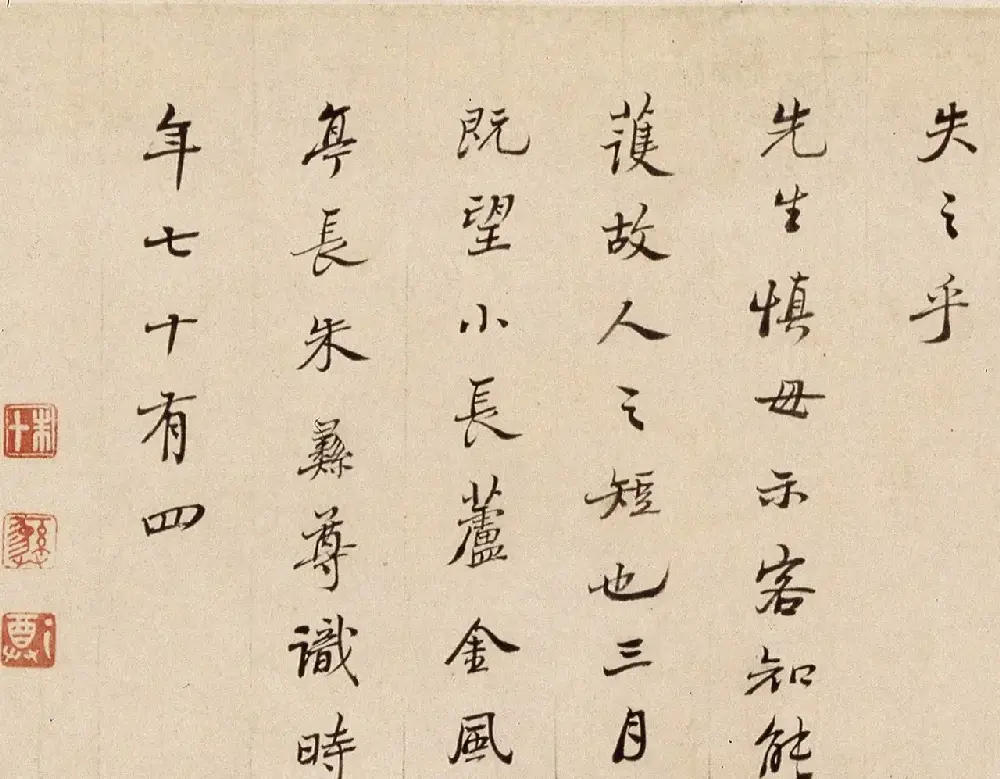 失之乎
先生慎毋示客知能
護故人之短也三月
既望小長蘆金風
亭長朱彝尊識時
年七十有四
朱
十
彝
尊